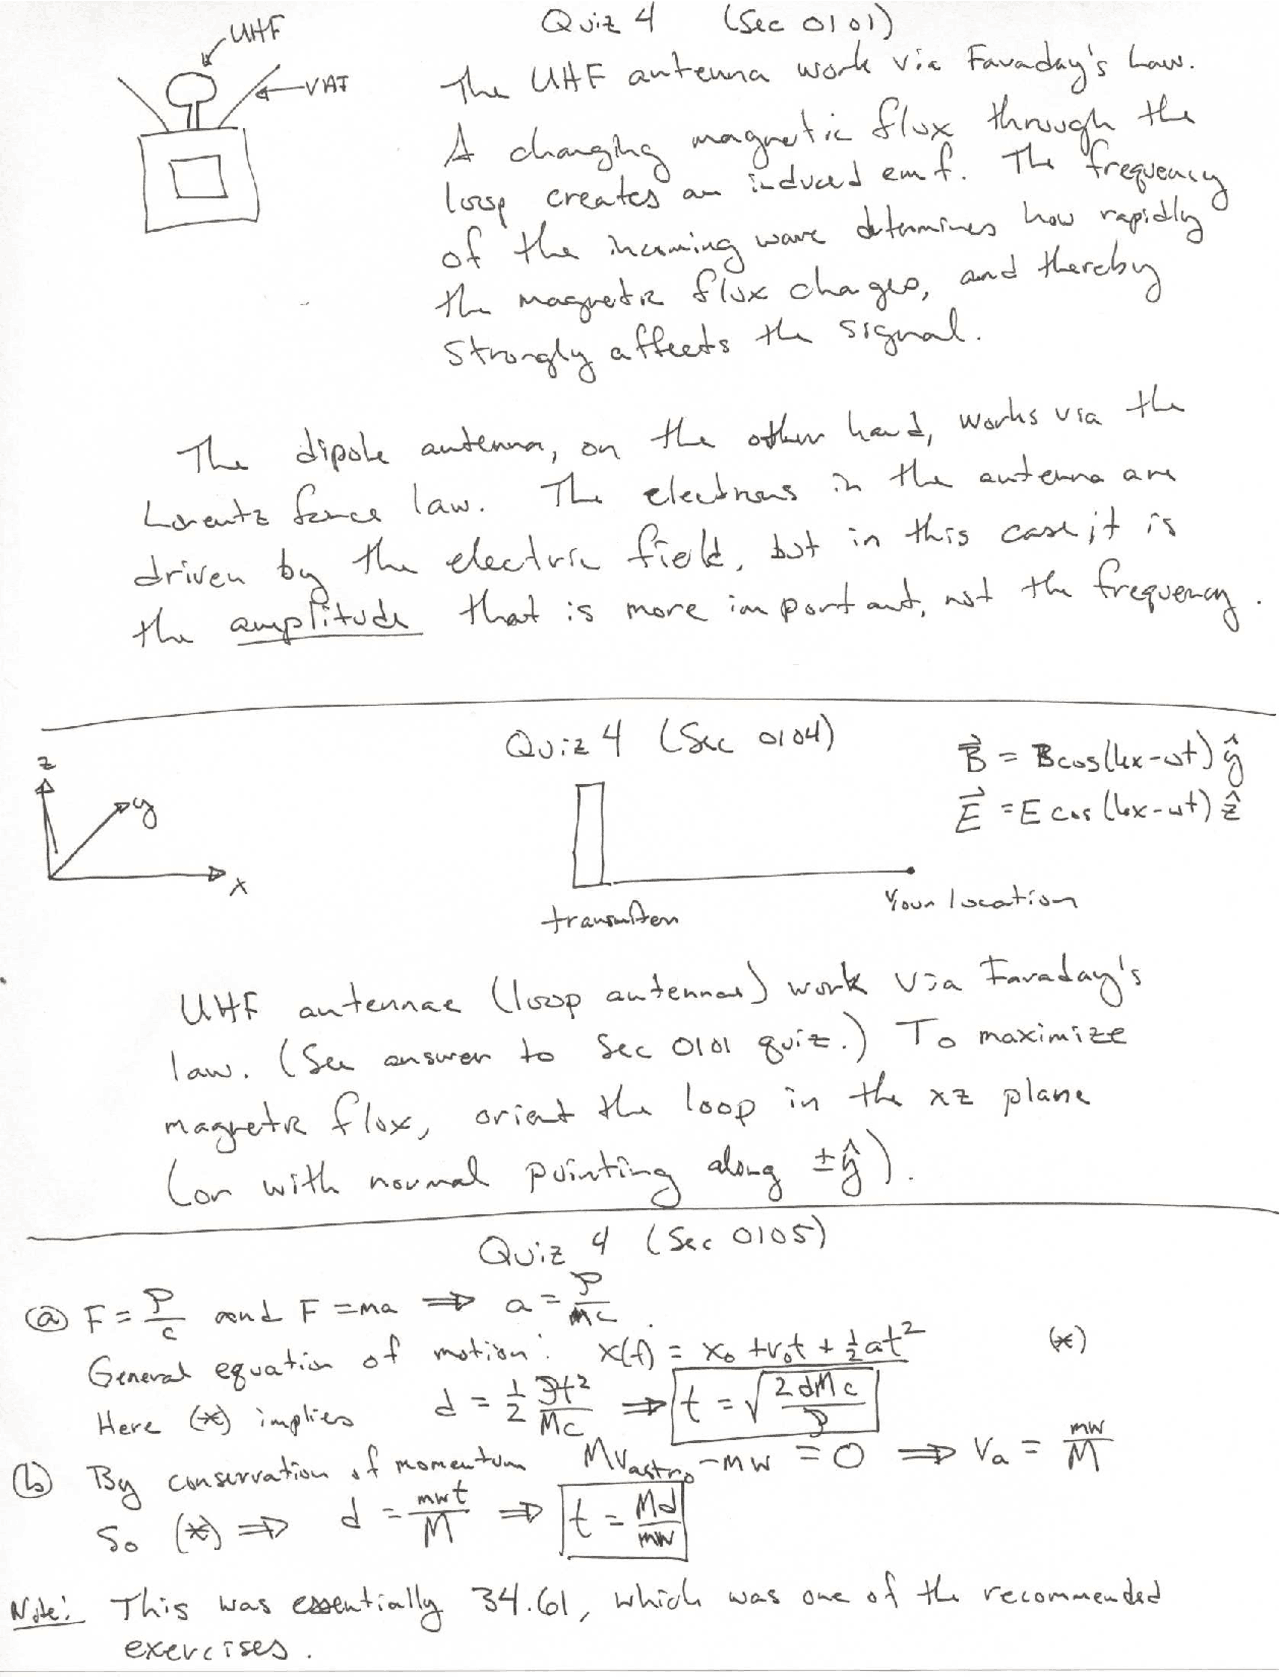 UHF
VHF
Quiz 4 (Sec 0101)
The UHF antenna work via Faraday's Law.
A changing magnetic flux through the
loop creates an induced emf. The frequency
of the incoming wave determines how rapidly
the magnetic flux changes, and thereby
strongly affects the signal.
The dipole antenna, on the other hand, works via the
Lorentz force law. The electrons in the antenna are
driven by the electric field, but in this case it is
the amplitude that is more important, not the frequency.
Quiz 4 (Sec 0104)
z
y
x
B⃗ = B cos(kx-ωt) ŷ
E⃗ = E cos(kx-ωt) ẑ
transmitter
Your location
UHF antennae (loop antennas) work via Faraday's
law. (See answer to Sec 0101 quiz.) To maximize
magnetic flux, orient the loop in the xz plane
(or with normal pointing along ±ŷ).
Quiz 4 (Sec 0105)
(a) F = P/c and F = ma ⇒ a = P/Mc
General equation of motion: x(t) = x₀ + v₀t + ½at² (*)
Here (*) implies d = ½ Pt²/Mc ⇒ t = √(2dMc/P)
(b) By conservation of momentum Mv_astro - mw = 0 ⇒ Va = mw/M
So (*) ⇒ d = mwt/M ⇒ t = Md/mw
Note: This was essentially 34.61, which was one of the recommended
exercises.